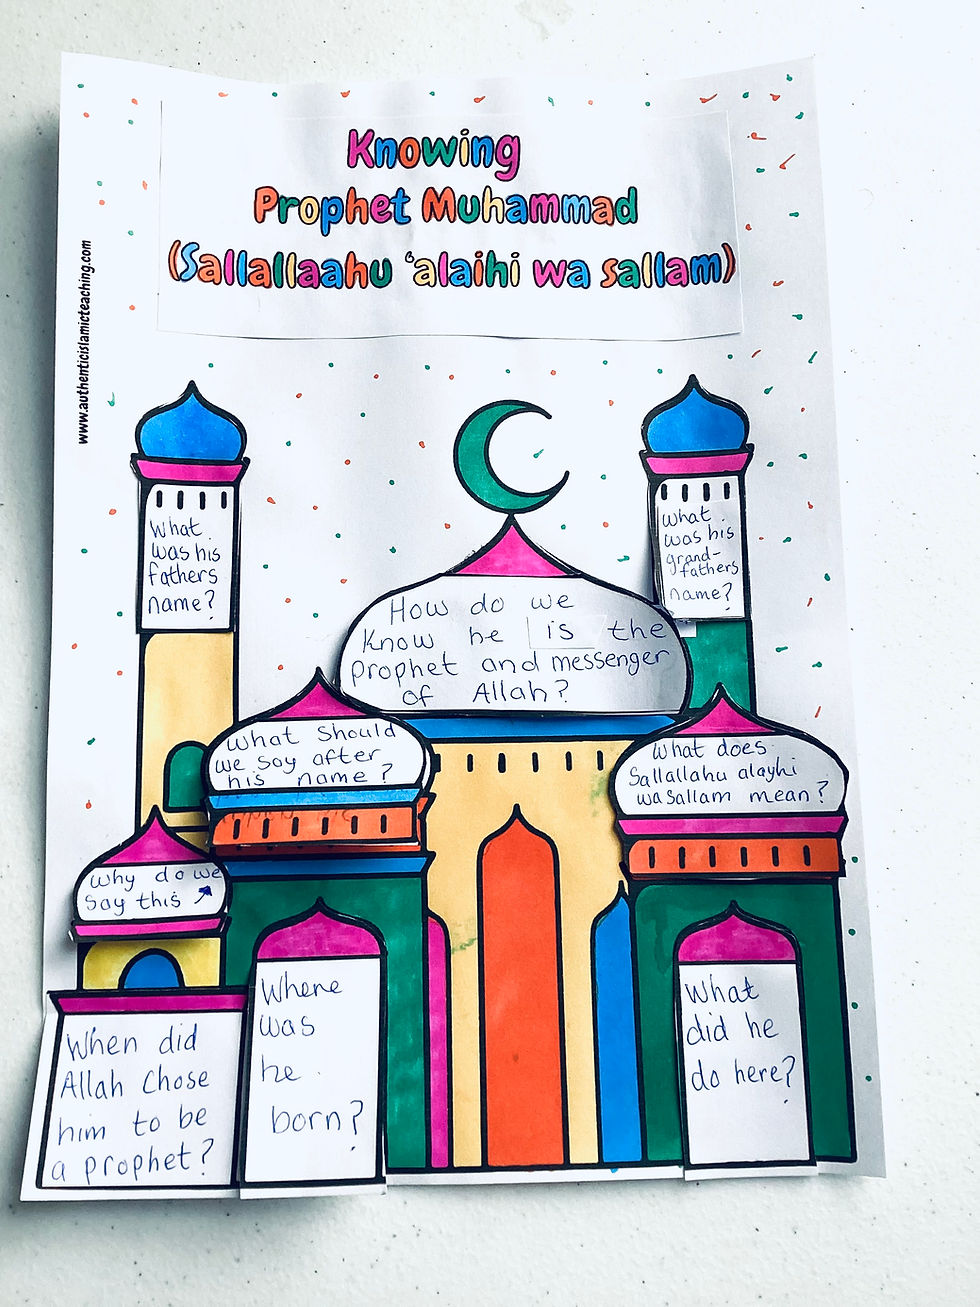 Knowing
Prophet Muhammad
(Sallallaahu 'alaihi wa sallam)
www.authenticislamicteaching.com
What
was his
fathers
name?
What
was his
grand-
fathers
name?
How do we
know he is the
prophet and messenger
of Allah?
What should
we say after
his name?
What does
Sallallahu alayhi
wa sallam mean?
Why do we
say this
When did
Allah chose
him to be
a prophet?
Where
was
he
born?
What
did he
do here?